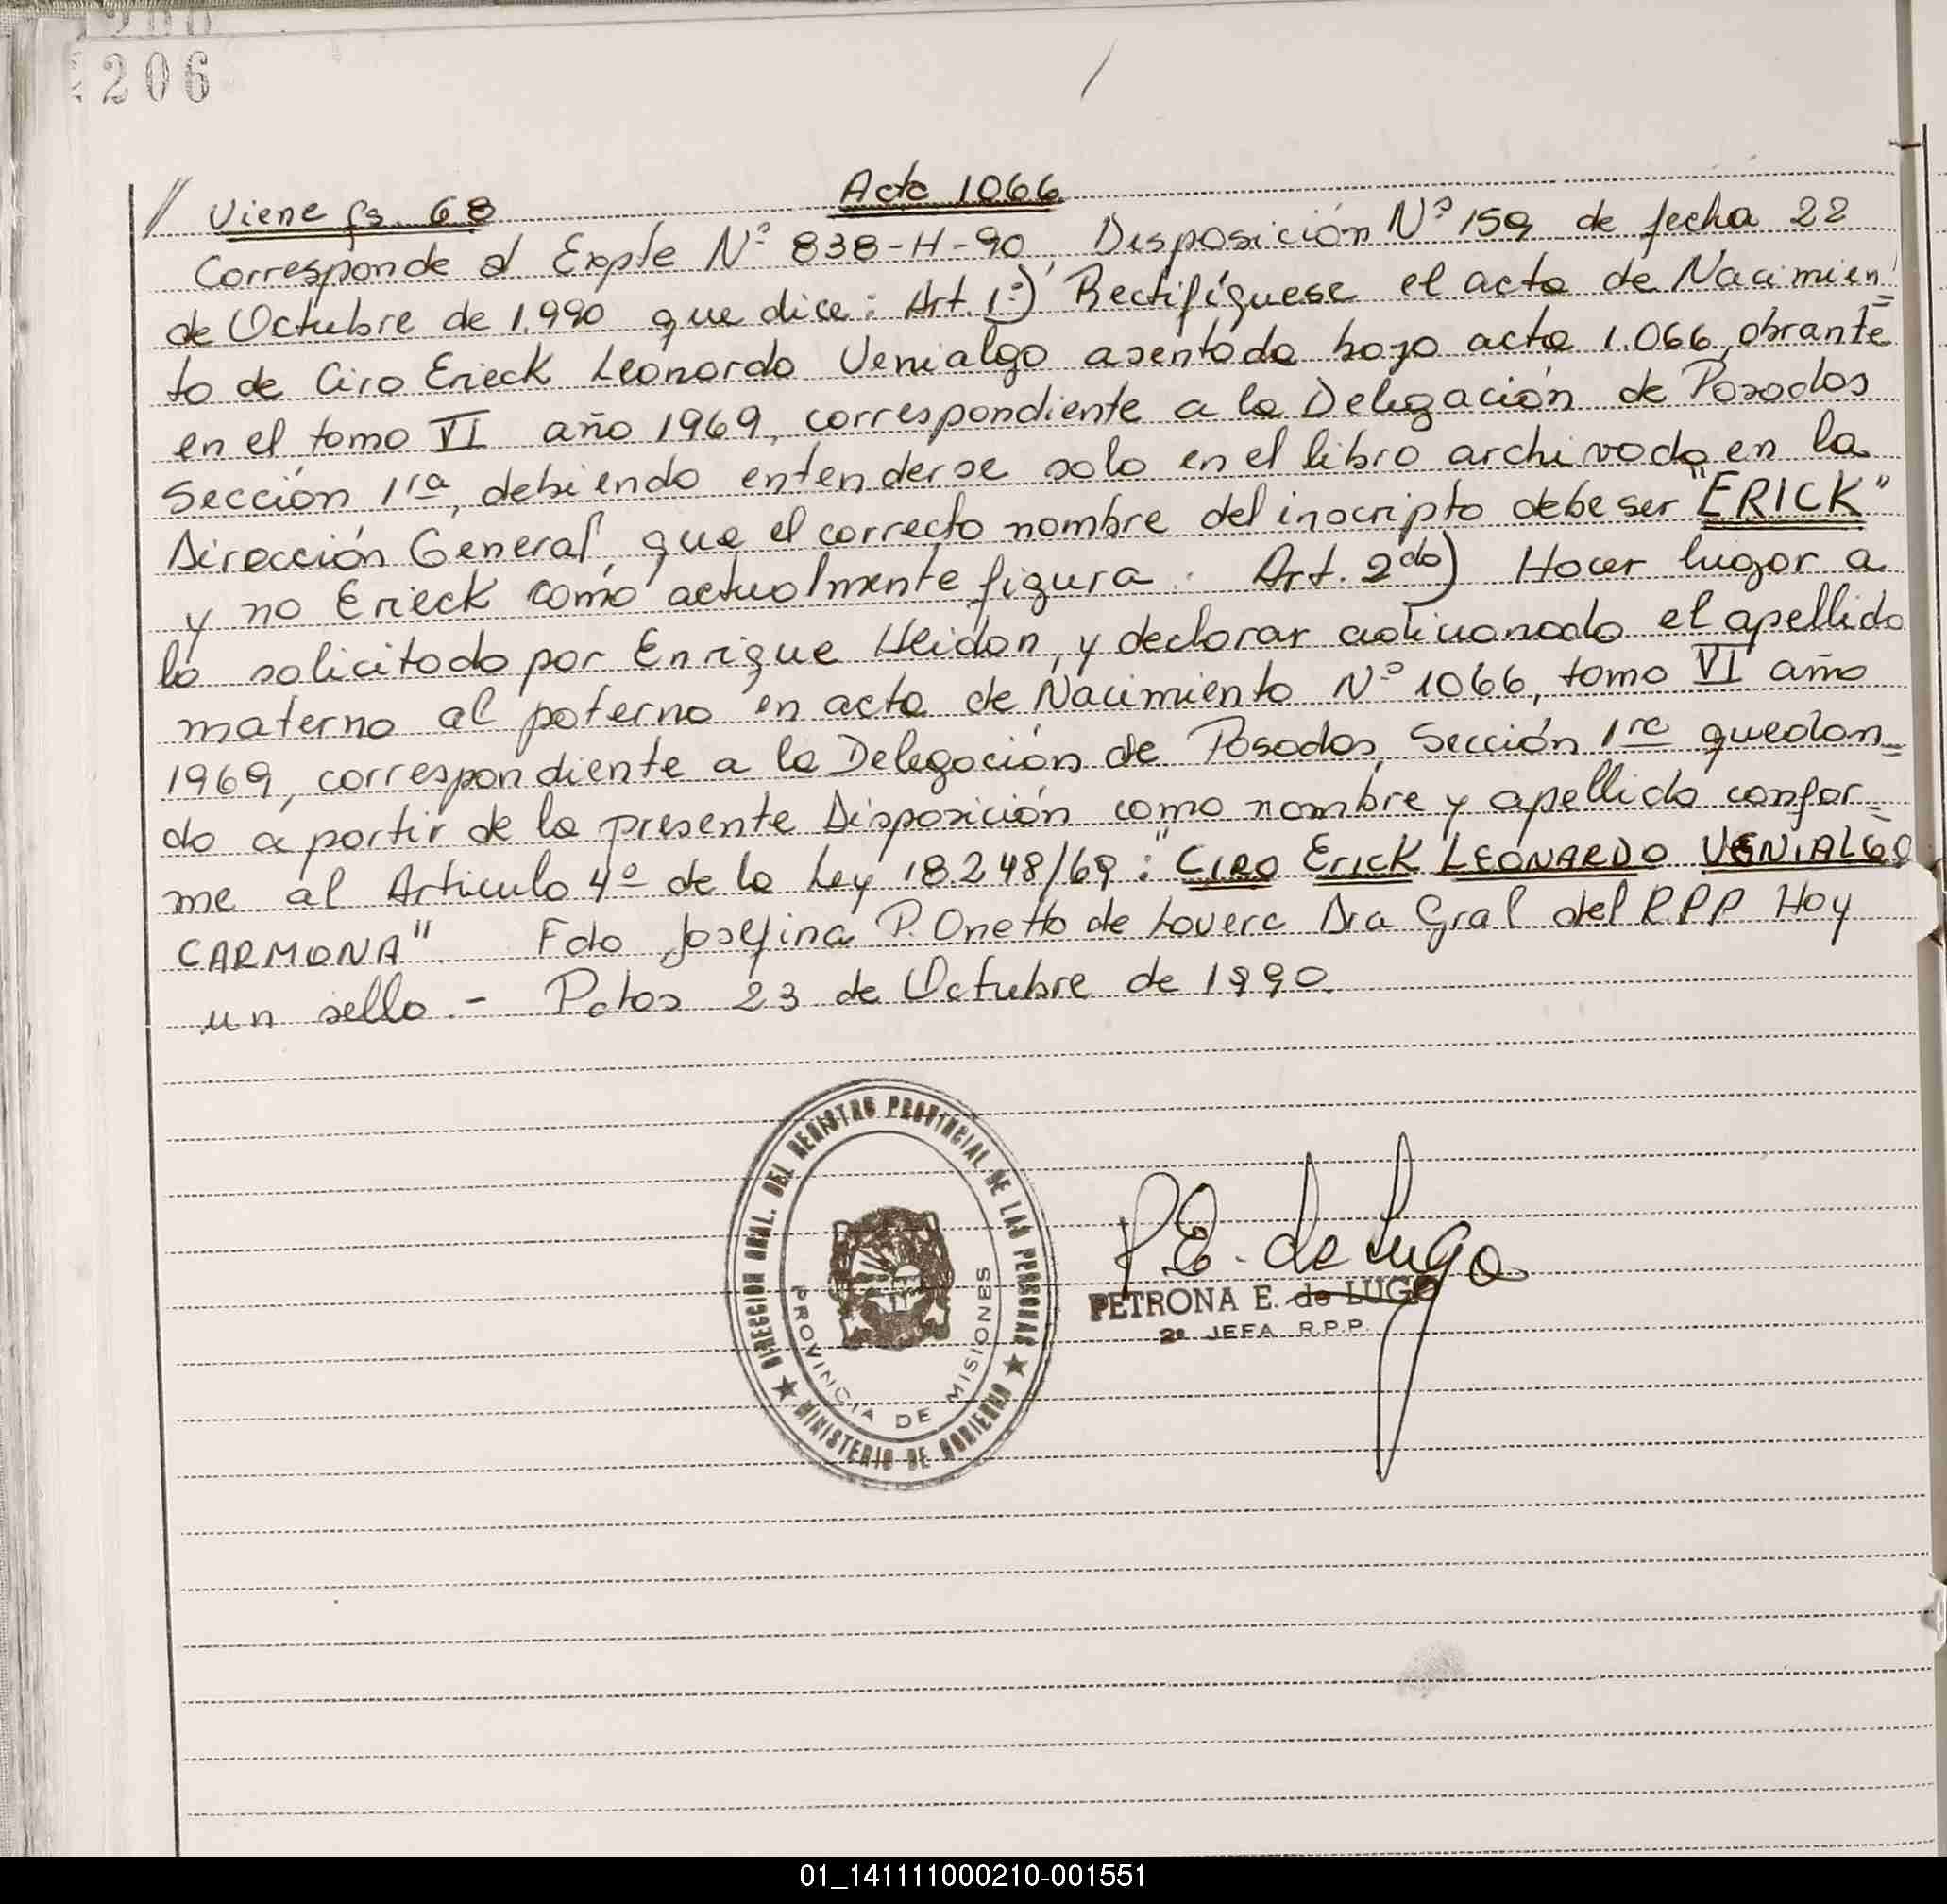 206
// Viene fs. 68 Acta 1066
Corresponde al Expte Nº 838-H-90, Disposición Nº 159 de fecha 22
de Octubre de 1.990 que dice: Art. 1º) Rectifíquese el acta de Nacimien=
to de Ciro Erieck Leonardo Venialgo asentada bajo acta 1.066, obrante
en el tomo VI año 1969, correspondiente a la Delegación de Posadas
Sección 1ra, debiendo entenderse solo en el libro archivado en la
Dirección General, que el correcto nombre del inscripto debe ser "ERICK"
y no Erieck como actualmente figura. Art. 2do) Hacer lugar a
lo solicitado por Enrique Heidan, y declarar adicionado el apellido
materno al paterno en acta de Nacimiento Nº 1066, tomo VI año
1969, correspondiente a la Delegación de Posadas, Sección 1ra quedan=
do a partir de la presente Disposición como nombre y apellido confor=
me al Articulo 4º de la Ley 18.248/69: "CIRO ERICK LEONARDO VENIALGO
CARMONA" Fdo Josefina P. Onetto de Lovera Dra Gral del R.P.P Hay
un sello.- Pdas 23 de Octubre de 1990.
DIRECCION GRAL. DEL REGISTRO PROVINCIAL DE LAS PERSONAS
PROVINCIA DE MISIONES
MINISTERIO DE GOBIERNO
P.E. de Lugo
PETRONA E. de LUGO
2ª JEFA R.P.P.
01_141111000210-001551